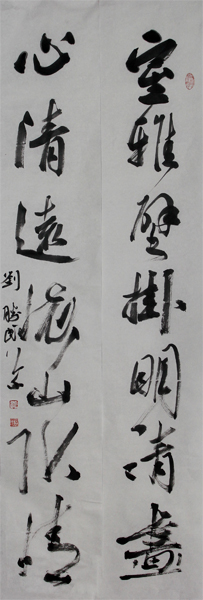 室雅壁掛明清畫
心清遠眺山水情
劉勝民